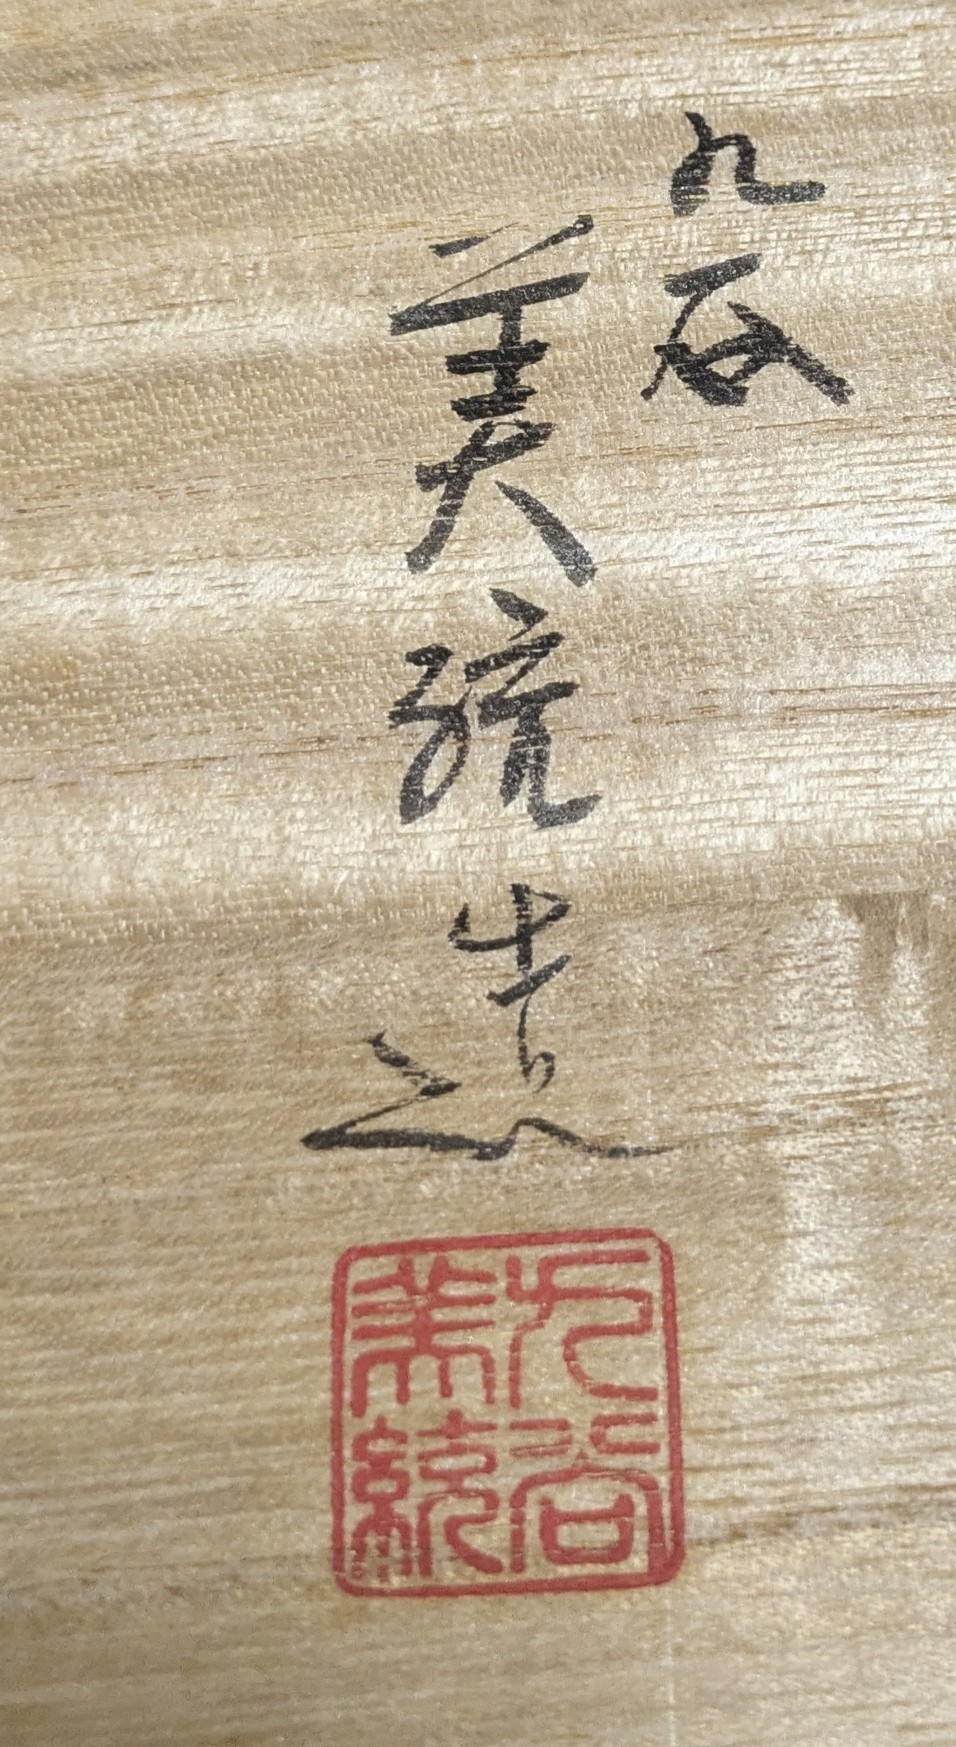 九谷
美統造
九谷
美統